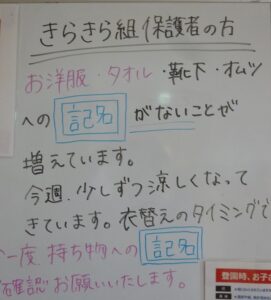 きらきら組 保護者の方
お洋服・タオル・靴下・オムツ
への 記名 がないことが
増えています。
今週、少しずつ涼しくなって
きています。衣替えのタイミングで
一度 持ち物への 記名
ご確認お願いいたします。
登園時、お子